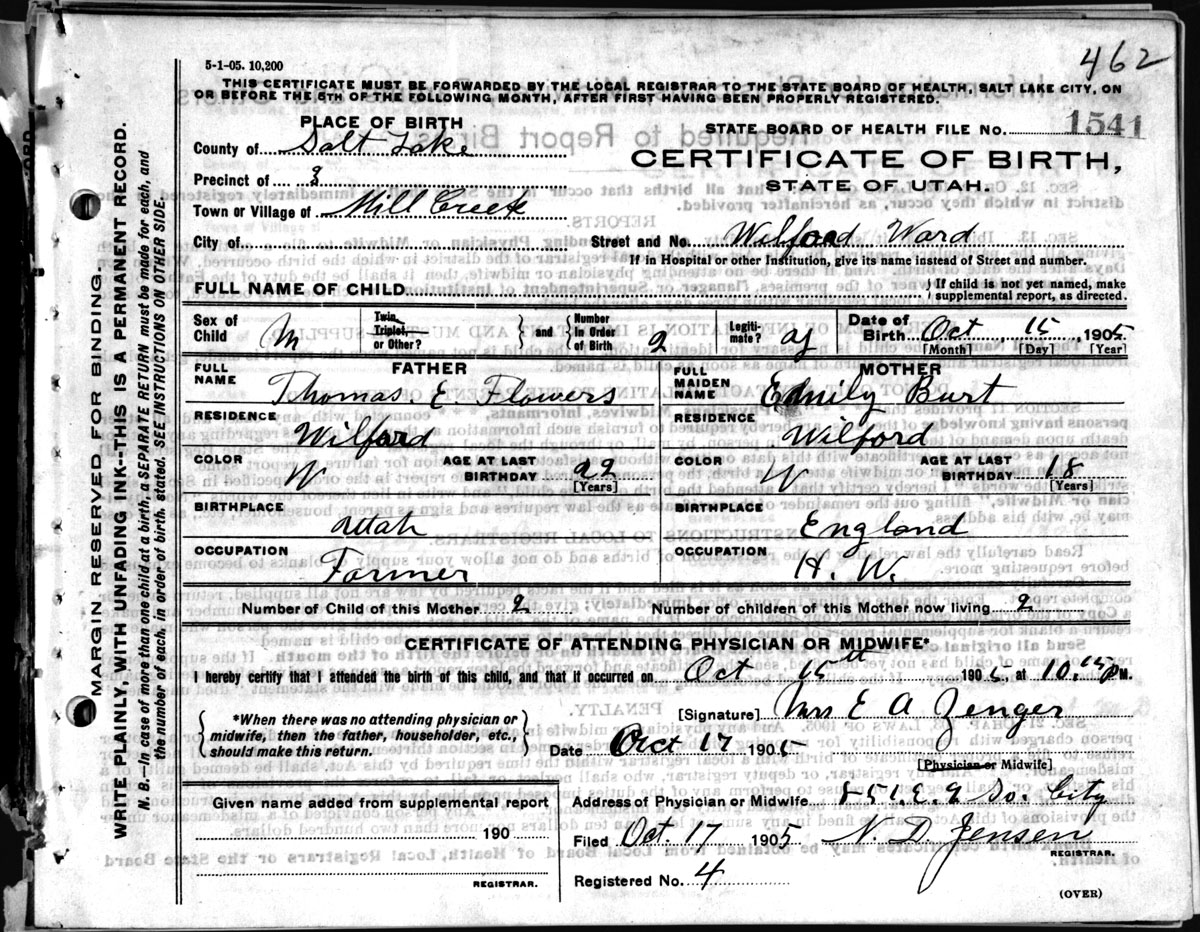 462
5-1-05. 10,200
THIS CERTIFICATE MUST BE FORWARDED BY THE LOCAL REGISTRAR TO THE STATE BOARD OF HEALTH, SALT LAKE CITY, ON
OR BEFORE THE 5TH OF THE FOLLOWING MONTH, AFTER FIRST HAVING BEEN PROPERLY REGISTERED.
PLACE OF BIRTH
STATE BOARD OF HEALTH FILE NO. 1541
County of Salt Lake
CERTIFICATE OF BIRTH,
Precinct of 3
STATE OF UTAH.
Town or Village of Mill Creek
City of Street and No. Wilford Ward
If in Hospital or other Institution, give its name instead of Street and number.
FULL NAME OF CHILD { If child is not yet named, make
supplemental report, as directed.
Sex of Child M
Twin, Triplet, or Other? } and { Number In Order of Birth 2
Legitimate?
Date of Birth Oct 15 1905
[Month] [Day] [Year]
FATHER
FULL NAME Thomas E Flowers
RESIDENCE Wilford
COLOR W AGE AT LAST BIRTHDAY 22
[Years]
BIRTHPLACE Utah
OCCUPATION Farmer
MOTHER
FULL MAIDEN NAME Emily Burt
RESIDENCE Wilford
COLOR W AGE AT LAST BIRTHDAY 18
[Years]
BIRTHPLACE England
OCCUPATION H. W.
Number of Child of this Mother 2 Number of children of this Mother now living 2
CERTIFICATE OF ATTENDING PHYSICIAN OR MIDWIFE*
I hereby certify that I attended the birth of this child, and that it occurred on Oct 15th 1905, at 10.15 P M.
{ *When there was no attending physician or
midwife, then the father, householder, etc.,
should make this return. }
[Signature] Mrs E A Zenger
Date Oct 17 1905
[Physician or Midwife]
Given name added from supplemental report
190
REGISTRAR.
Address of Physician or Midwife 551. E. 9 So. City
Filed Oct. 17 1905 N. D. Jensen
REGISTRAR.
Registered No. 4
(OVER)
MARGIN RESERVED FOR BINDING.
WRITE PLAINLY, WITH UNFADING INK--THIS IS A PERMANENT RECORD.
N. B.—In case of more than one child at a birth, a SEPARATE RETURN must be made for each, and
the number of each, in order of birth, stated. SEE INSTRUCTIONS ON OTHER SIDE.